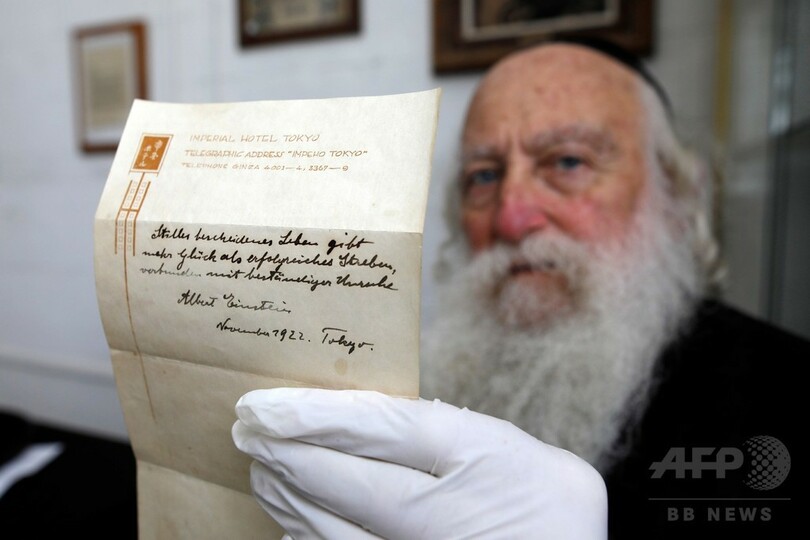 IMPERIAL HOTEL TOKYO
TELEGRAPHIC ADDRESS "IMPEHO TOKYO"
TELEPHONE GINZA
Stilles bescheidenes Leben gibt
mehr Glück als erfolgreiches Streben,
verbunden mit beständiger Unruhe
Albert Einstein
November 1922. Tokyo.
AFP
BB NEWS